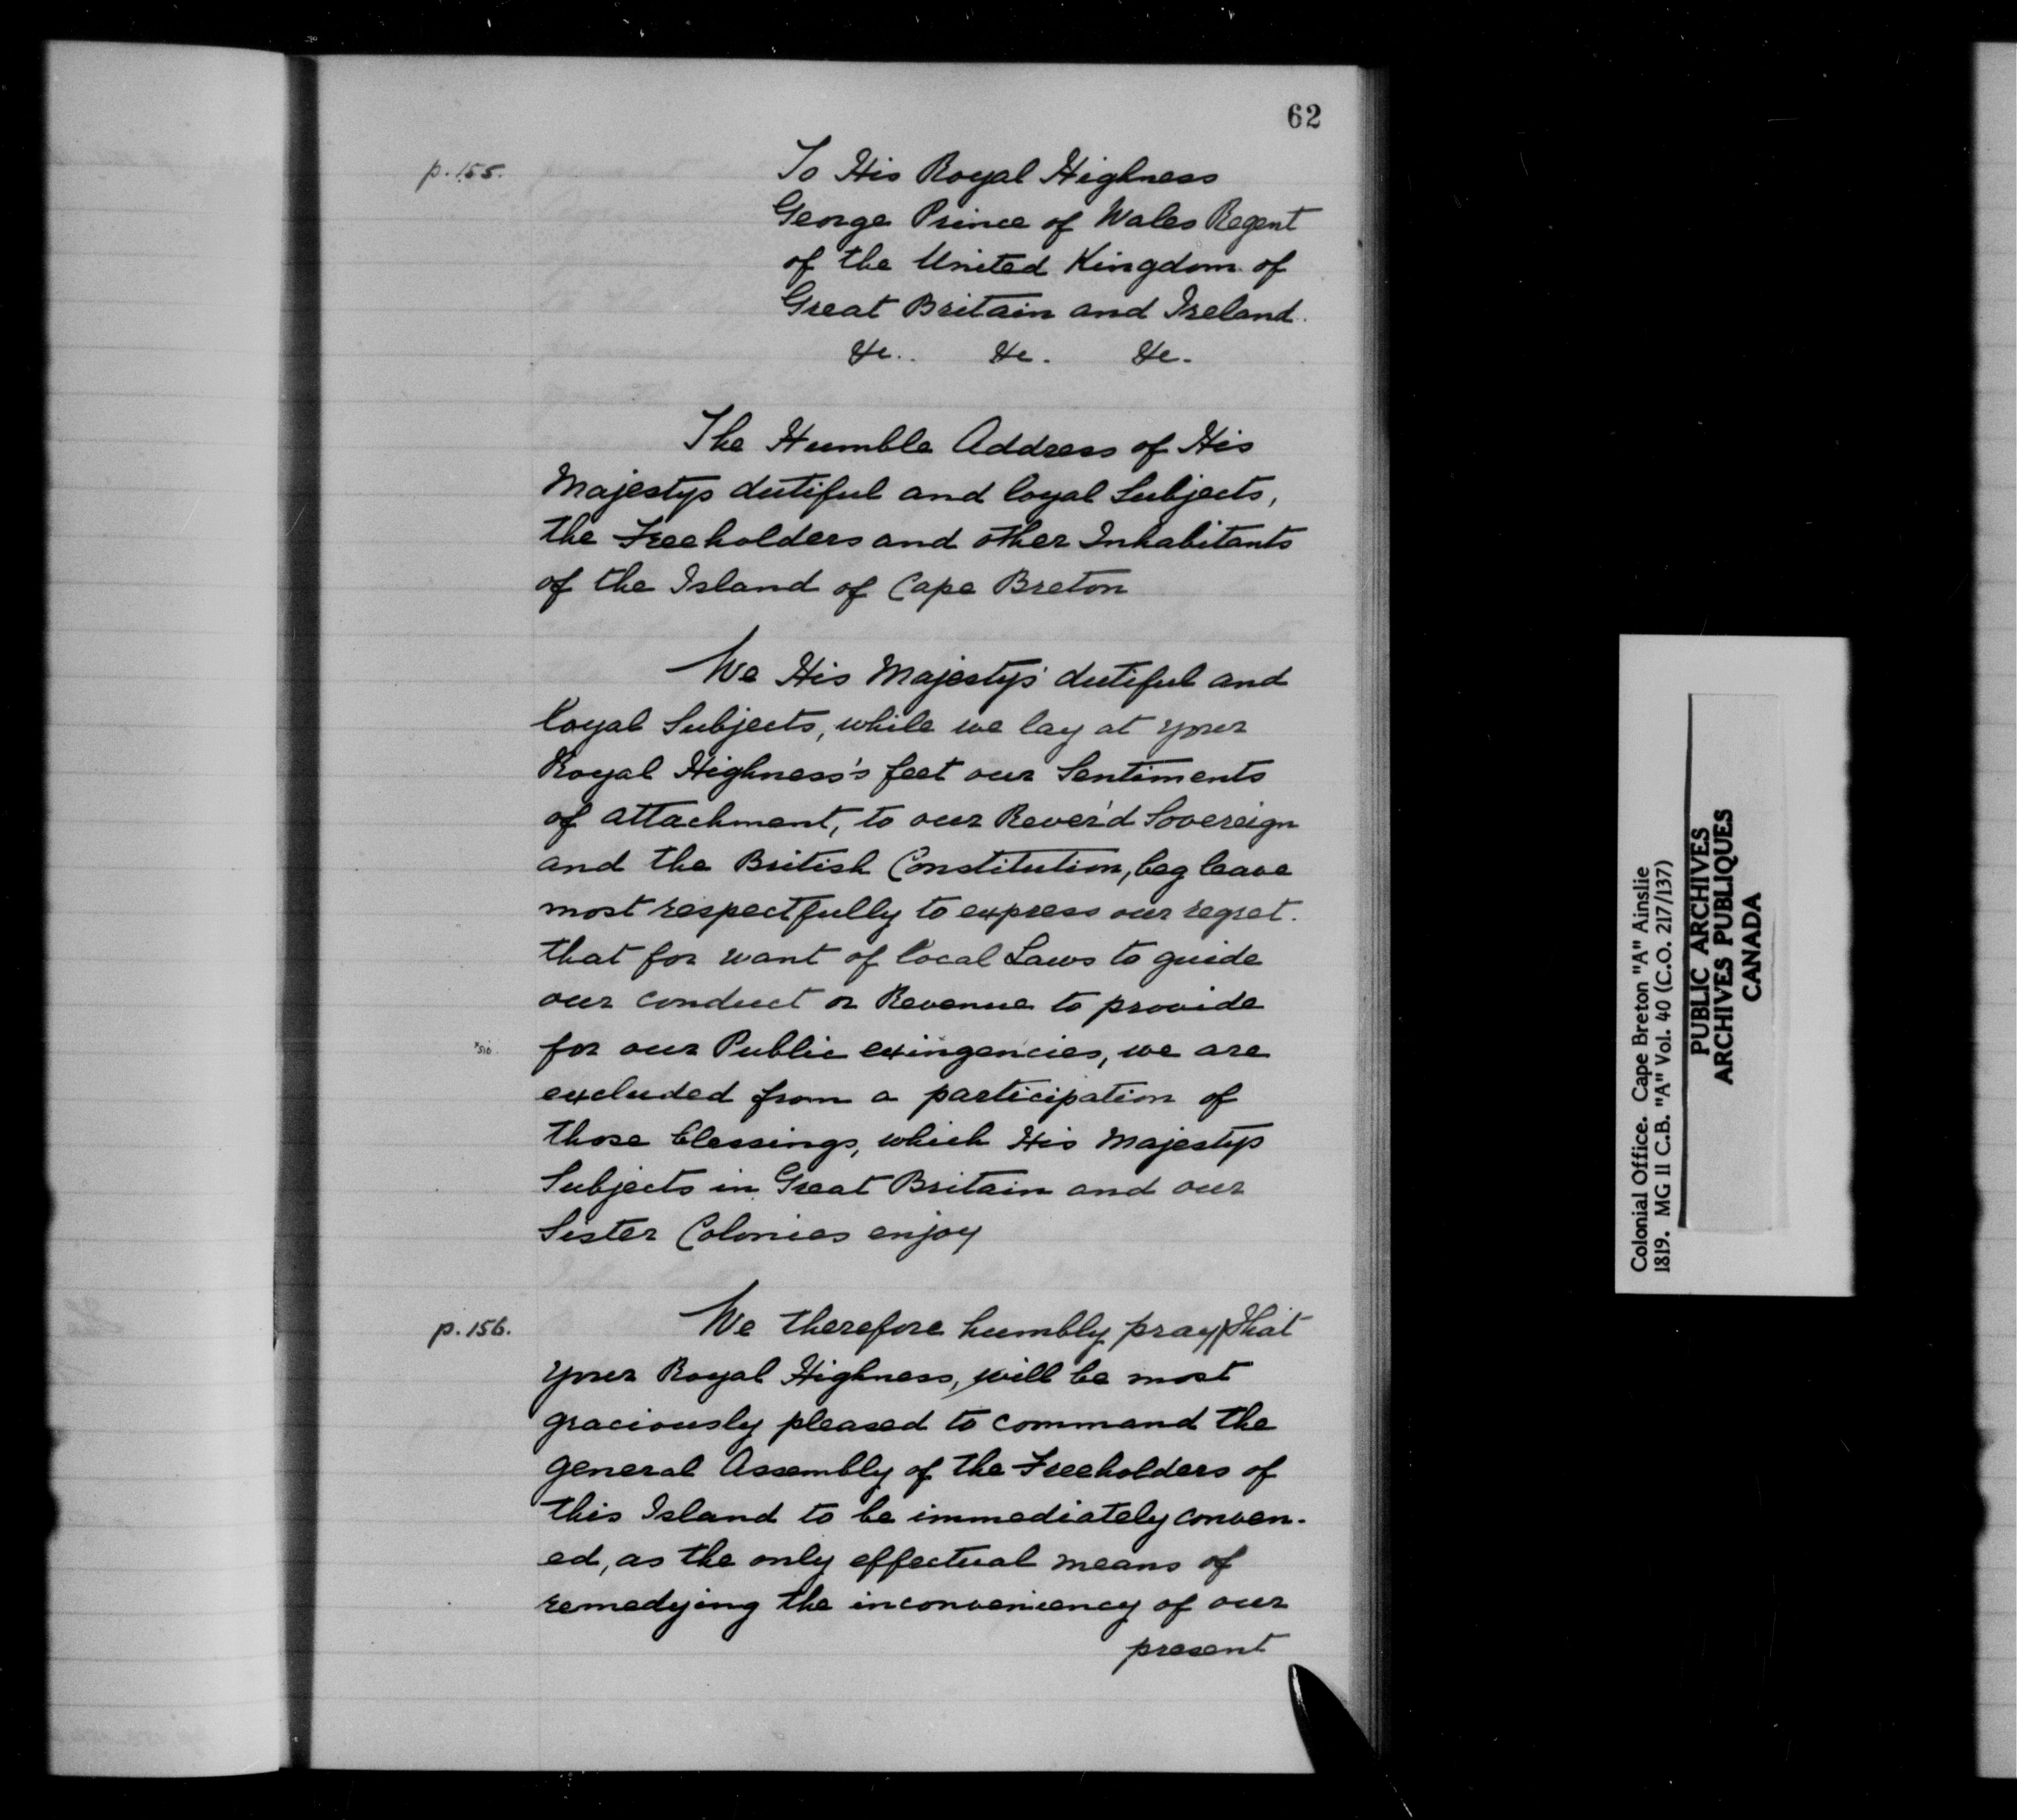 62
p.155.
To His Royal Highness
George Prince of Wales Regent
of the United Kingdom of
Great Britain and Ireland.
&c. &c. &c.
The Humble Address of His
Majestys dutiful and loyal Subjects,
the Freeholders and other Inhabitants
of the Island of Cape Breton
We His Majestys dutiful and
loyal Subjects, while we lay at your
Royal Highness's feet our Sentiments
of attachment, to our Rever'd Sovereign
and the British Constitution, beg leave
most respectfully to express our regret.
that for want of local Laws to guide
our conduct or Revenue to provide
*sic
for our Public exingencies, we are
excluded from a participation of
those blessings, which His Majestys
Subjects in Great Britain and our
Sister Colonies enjoy
p.156.
We therefore humbly pray, That
your Royal Highness, will be most
graciously pleased to command the
general Assembly of the Freeholders of
this Island to be immediately conven-
ed, as the only effectual means of
remedying the inconveniency of our
present
Colonial Office. Cape Breton "A" Ainslie
1819. MG 11 C.B. "A" Vol. 40 (C.O. 217/137)
PUBLIC ARCHIVES
ARCHIVES PUBLIQUES
CANADA